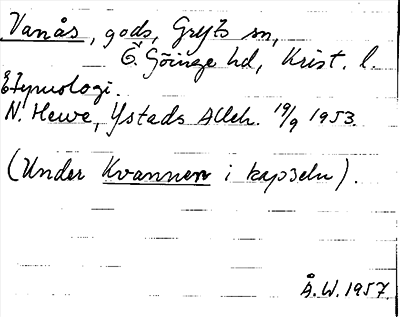 Vanås, gods, Gryts sn,
Ö. Göinge hd, Krist. l.
Etymologi.
N. Hewe, Ystads Alleh. 19/9 1953.
(Under Kvannen i kapseln).
Å.W. 1957.